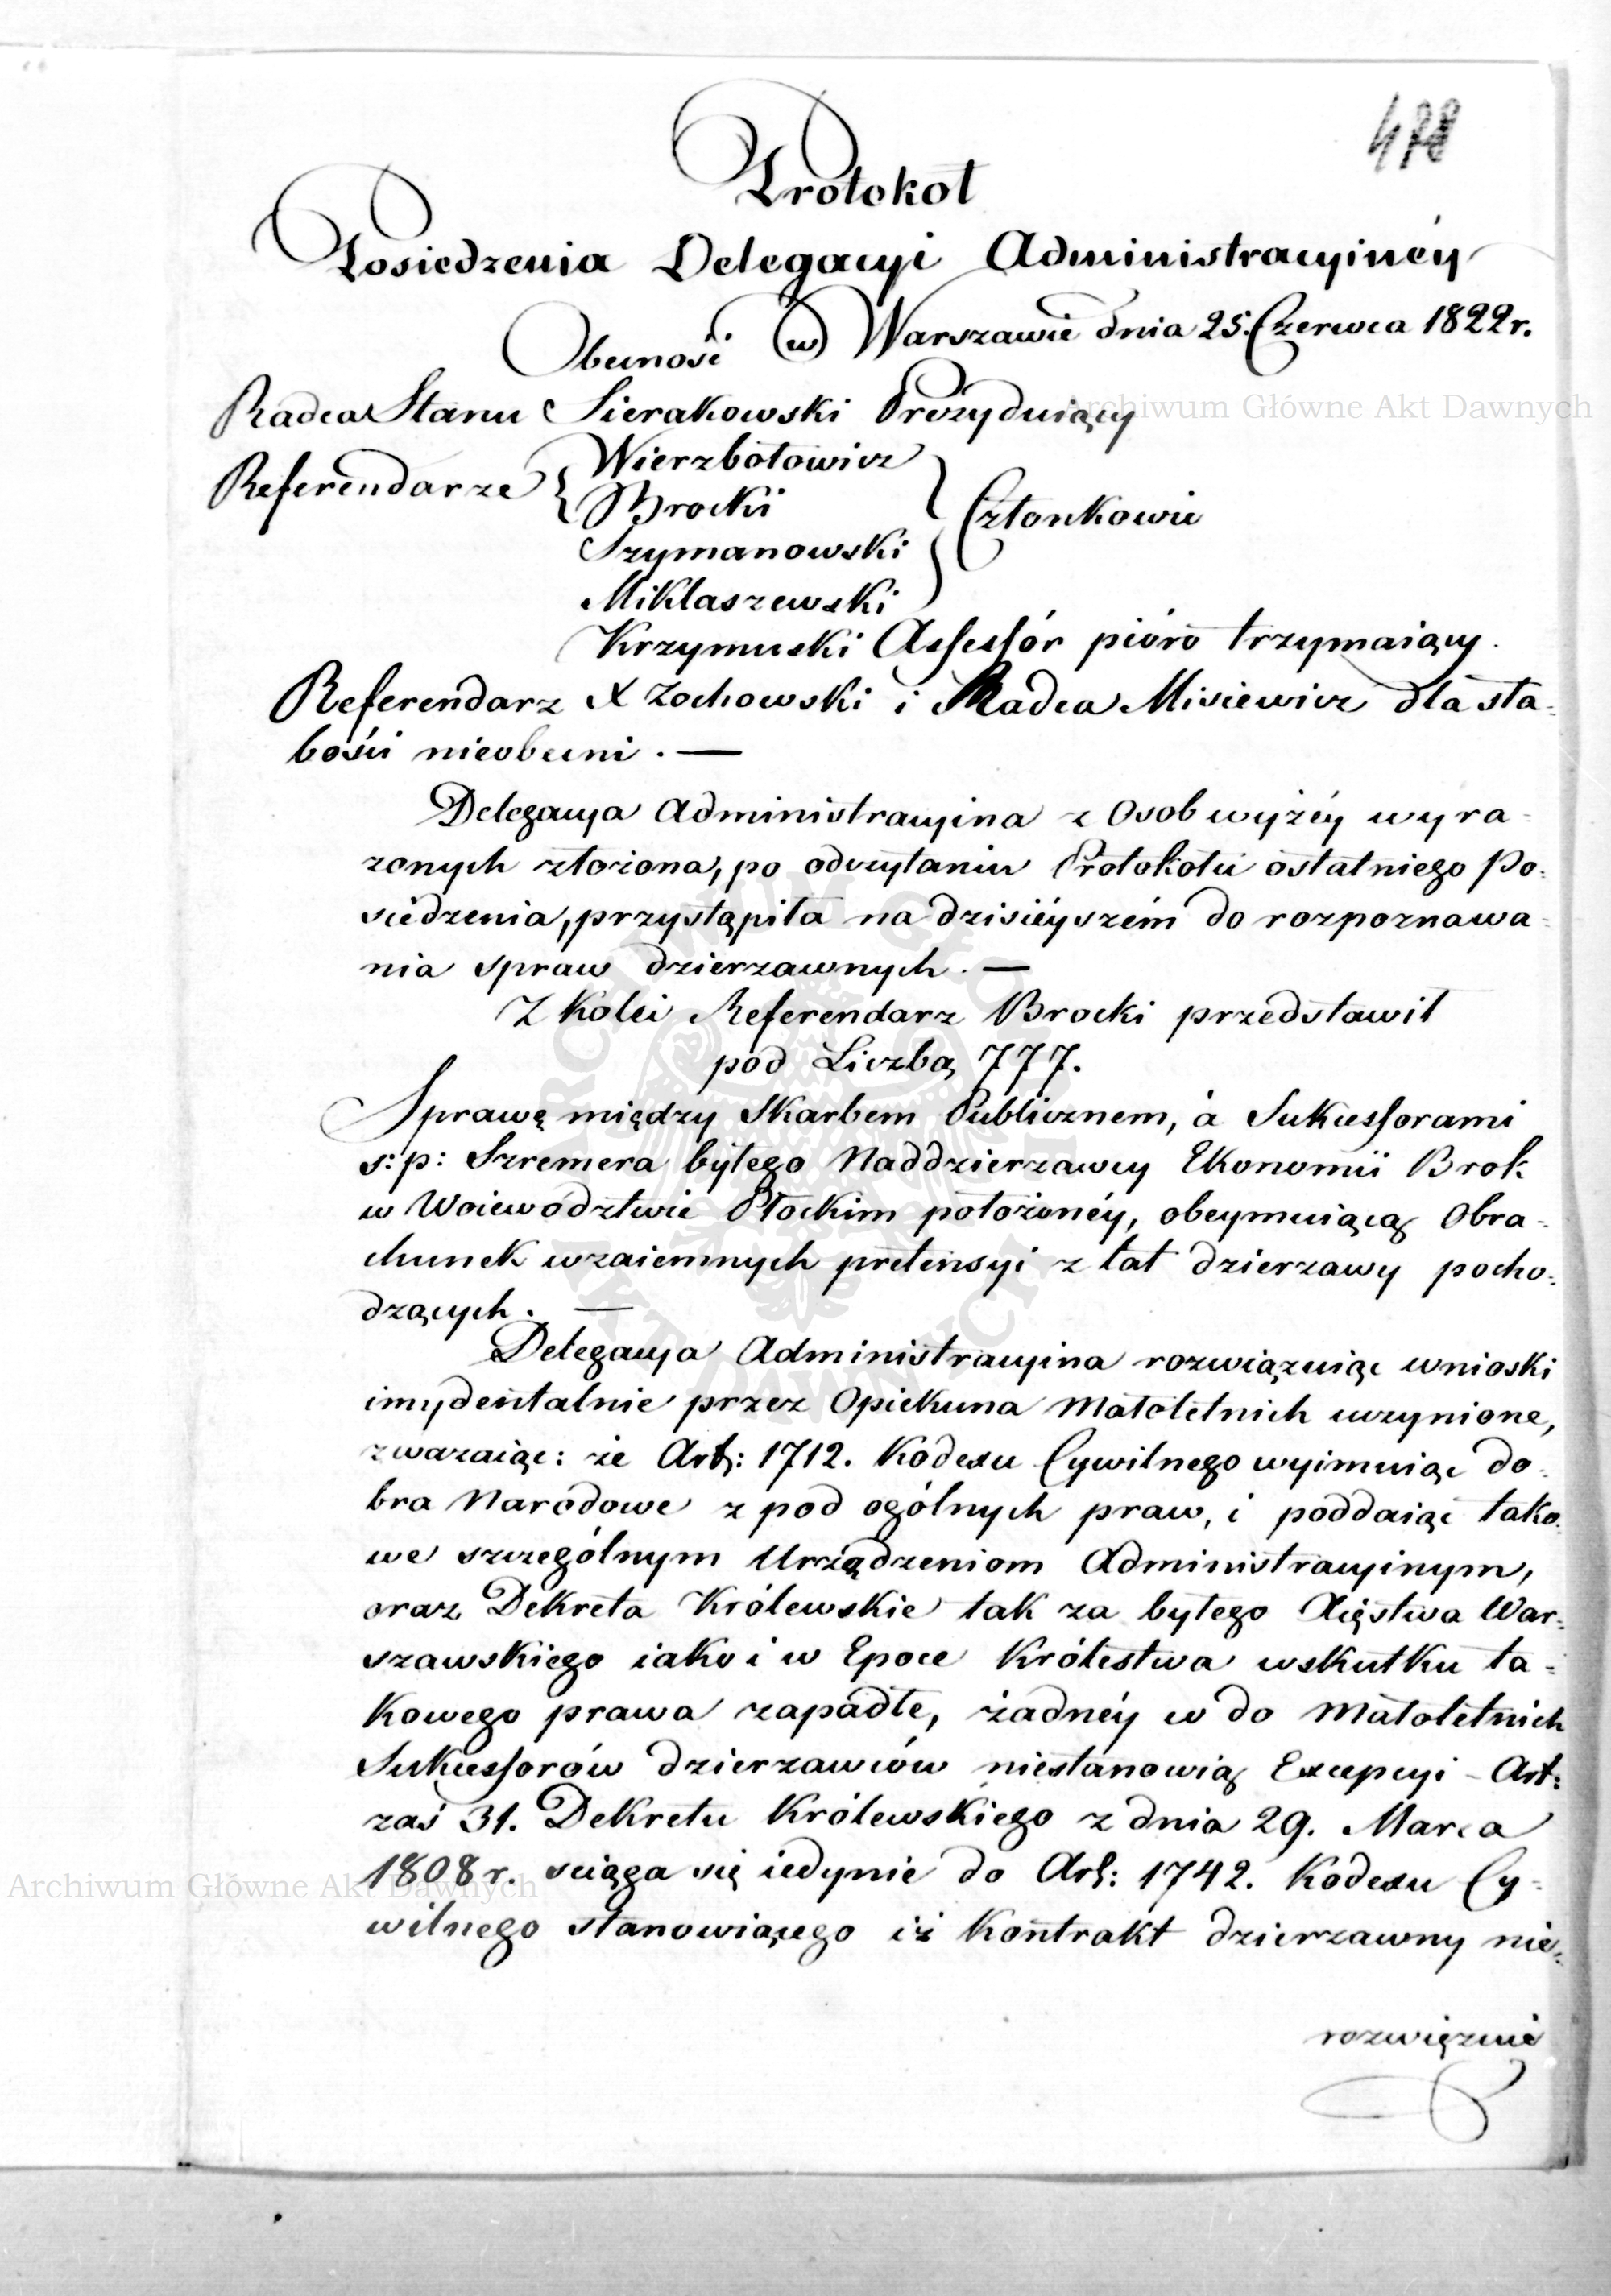 478
Protokół
Posiedzenia Delegacyi Administracyinéy
w Warszawie dnia 25. Czerwca 1822 r.
Obecność
Radca Stanu Sierakowski Prezyduiący
Referendarze { Wierzbołowicz
Brocki } Członkowie
Szymanowski
Mikłaszewski
Krzymuski Assessór pióro trzymaiący.
Referendarz X Zochowski i Radca Misiewicz dla sła-
bości nieobecni. —
Delegacya Administracyina z Osob wyżéy wyra-
zonych złożona, po odczytaniu Protokołu ostatniego Po-
siedzenia, przystąpiła na dzisiéyszém do rozpoznawa-
nia spraw dzierzawnych. —
Z kolei Referendarz Brocki przedstawił
pod Liczbą 777.
Sprawę między Skarbem Publicznem, a Sukcessorami
s: p: Szremera byłego Naddzierzawcy Ekonomii Brok
w Woiewództwie Płockim położonéy, obeymuiącą Obra-
chunek wzaiemnych pretensyi z lat dzierzawy pocho-
dzących. —
Delegacya Administracyina rozwiązuiąc wnioski
incydentalnie przez Opiekuna Małoletnich uczynione,
zwazaiąc: że Art: 1712. Kodexu Cywilnego wyimuiąc do-
bra Narodowe z pod ogólnych praw, i poddaiąc tako-
we szczególnym Urządzeniom Administracyinym,
oraz Dekreta Królewskie tak za byłego Xięstwa War-
szawskiego iako i w Epoce Królestwa wskutku ta-
kowego prawa zapadłe, żadnéy w do Małoletnich
Sukcessorów dzierzawców niestanowią Excepcyi - Art:
zaś 31. Dekretu Królewskiego z dnia 29. Marca
1808 r. sciąga się iedynie do Art: 1742. Kodexu Cy-
wilnego stanowiącego iż Kontrakt dzierzawny nie-
rozwięzuie
Archiwum Główne Akt Dawnych
Archiwum Główne Akt Dawnych
ARCHIWUM GŁÓWNE AKT DAWNYCH